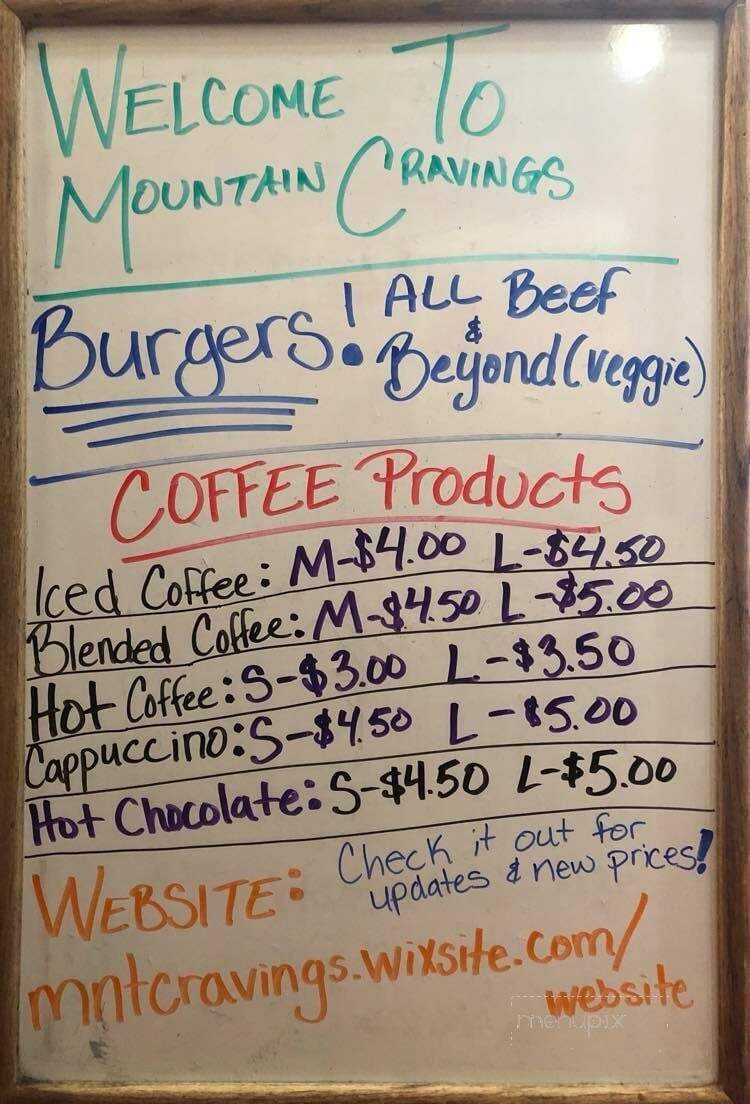 WELCOME TO
MOUNTAIN CRAVINGS
Burgers! ALL Beef
&
Beyond (veggie)
COFFEE Products
Iced Coffee: M-$4.00 L-$4.50
Blended Coffee: M-$4.50 L-$5.00
Hot Coffee: S-$3.00 L-$3.50
Cappuccino: S-$4.50 L-$5.00
Hot Chocolate: S-$4.50 L-$5.00
WEBSITE: Check it out for
updates & new prices!
mntcravings.wixsite.com/
website
menupix